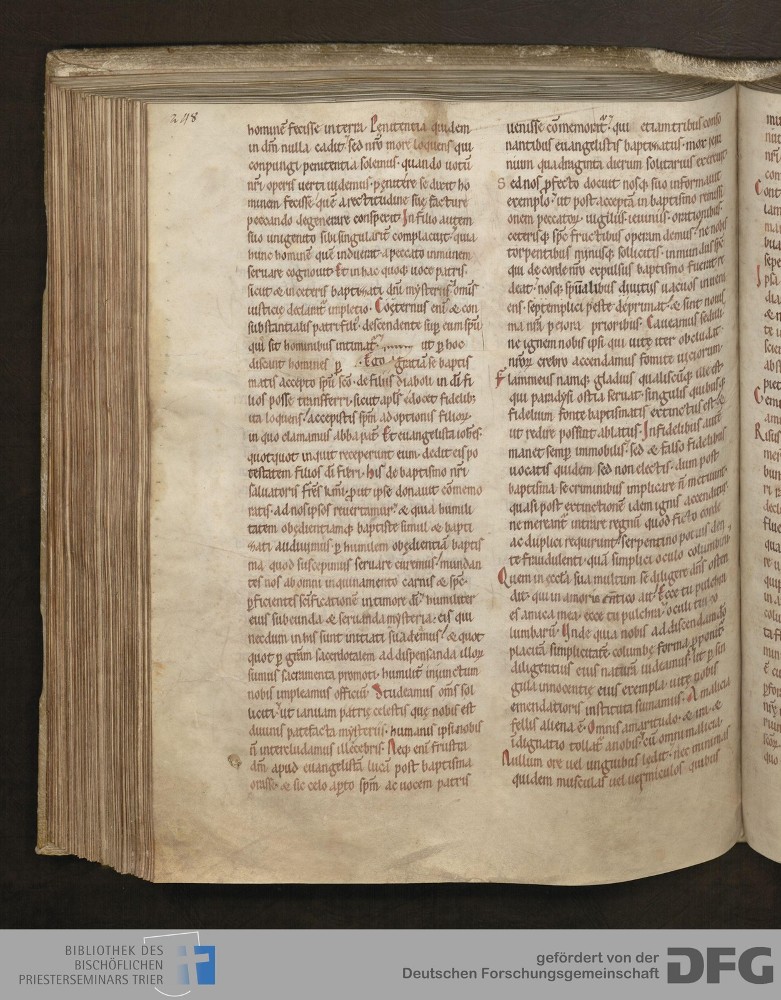 248
hominē fecisse in terra. Penitentia quidem
in dm̄ nulla cadit. sed nr̄o more loquens qui
conpungi penitentia solemus. quando uotū
nr̄i operis uerti uidemus. penitere se dixit ho
minem fecisse. quē a rectitudine suę facturę
peccando degenerare conspexit. In filio autem
suo unigenito sibi singularit̄ complacuit. quia
hunc hominē quē induerat a peccato inmunem
seruare cognouit. Et in hac quoq; uoce patris.
sicut & in ceteris baptizati dn̄i mysteriis om̄is
iusticię declarat᷑ impletio. Coęternus eni & con
substantialis patri fili᷒. descendente sup eum sp̄u
qui sit hominibus intimat᷑ ut p hoc
discant homines p gratiā se baptis
matis accepto sp̄u sc̄o. de filiis diaboli in di fi
lios posse transferri. sicut apl̄s edocet fidelib;
ita loquens. accepistis sp̄m adoptionis filioꝝ.
in quo clamamus abba pat̄. Et euangelista ioh̄es.
quotquot inquit receperunt eum. dedit eis po
testatem filios di fieri. His de baptismo nr̄i
saluatoris fr̄es kr̄mi. put ipse donauit cōmemo
ratis. ad nosipsos reuertamur. & quia humili
tatem obędientiamq; baptistę simul & bapti
zati audiuimus. p humilem obędientiā baptis
ma quod suscepimus seruare curemus. mundan
tes nos ab omni inquinamento carnis & sps̄.
pficientes sc̄ificationē in timore di. humiliter
eius subeunda & seruanda mysteria. eis qui
necdum in his sunt initiati suademus. & quot
quot p gr̄am sacerdotalem ad dispensanda illoꝝ
sumus sacramenta promoti. humilit̄ iniunctum
nobis impleamus officiū. Studeamus om̄s sol
licitę. ut ianuam patrię celestis quę nobis est
diuinis patefacta mysteriis. humanis ipsi nobis
n̄ intercludamus illecebris. Neq; eni frustra
dn̄m apud euangelistā lucā post baptisma
orasse. & sic celo apto sp̄m ac uocem patris
uenisse cōmemorat᷑. qui etiam tribus conso
nantibus euangelistis baptizatus. mox ieiu
nium quadraginta dierum solitarius exercuit
Sed nos pfecto docuit nosq; suo informauit
exemplo. ut post acceptā in baptismo remissi
onem peccatoꝝ. uigiliis. ieiuniis. orationibus.
ceterisq; sps̄ fructibus operam demus. ne nobis
torpentibus minusq; sollicitis. inmundus sps̄
qui de corde nr̄o expulsus baptismo fuerat re
deat. nosq; sp̄ualibus diuitiis uacuos inueni
ens. septemplici peste deprimat. & sint nouis
ma nr̄a peiora prioribus. Caueamus sedulo
ne ignem nobis ipsi qui uitę iter obcludat.
nr̄oꝝ crebro accendamus fomite uicioꝝ.
Flammeus namq; gladius qualiscūq; ille est.
qui paradysi ostia seruat. singulis quibusq;
fidelium fonte baptismatis extinctus est.
ut redire possint ablatus. Infidelibus autē
manet semp immobilis. sed & falso fidelibus
uocatis quidem sed non electis. dum post
baptisma se criminibus implicare n̄ metuunt.
quasi post extinctionē idem ignis accenditur.
ne mereant᷑ intrare regnū quod ficto corde
ac duplici requirunt. serpentino potius den
te fraudulenti. quā simplici oculo columbino.
Quem in ęccl̄a sua multum se diligere dn̄s osten
dit. qui in amoris cantico ait. Ecce tu pulchra
es amica mea. ecce tu pulchra. oculi tui
lumbarū. Unde quia nobis ad discendendo
placitā simplicitatē columbę forma pponit᷑
diligentius eius naturā uideamus. ut p sin
gula innocentię eius exempla. uitę nobis
emendatioris instituta sumamus. A malicia
fellis aliena ē. Omnis amaritudo. & ira. &
idignatio tollat᷑ a nobis. cū omni malicia.
Nullum ore uel unguibus lędit. nec minimas
quidem musculas uel uermiculos quibus
BIBLIOTHEK DES
BISCHÖFLICHEN
PRIESTERSEMINARS TRIER
gefördert von der
Deutschen Forschungsgemeinschaft
DFG